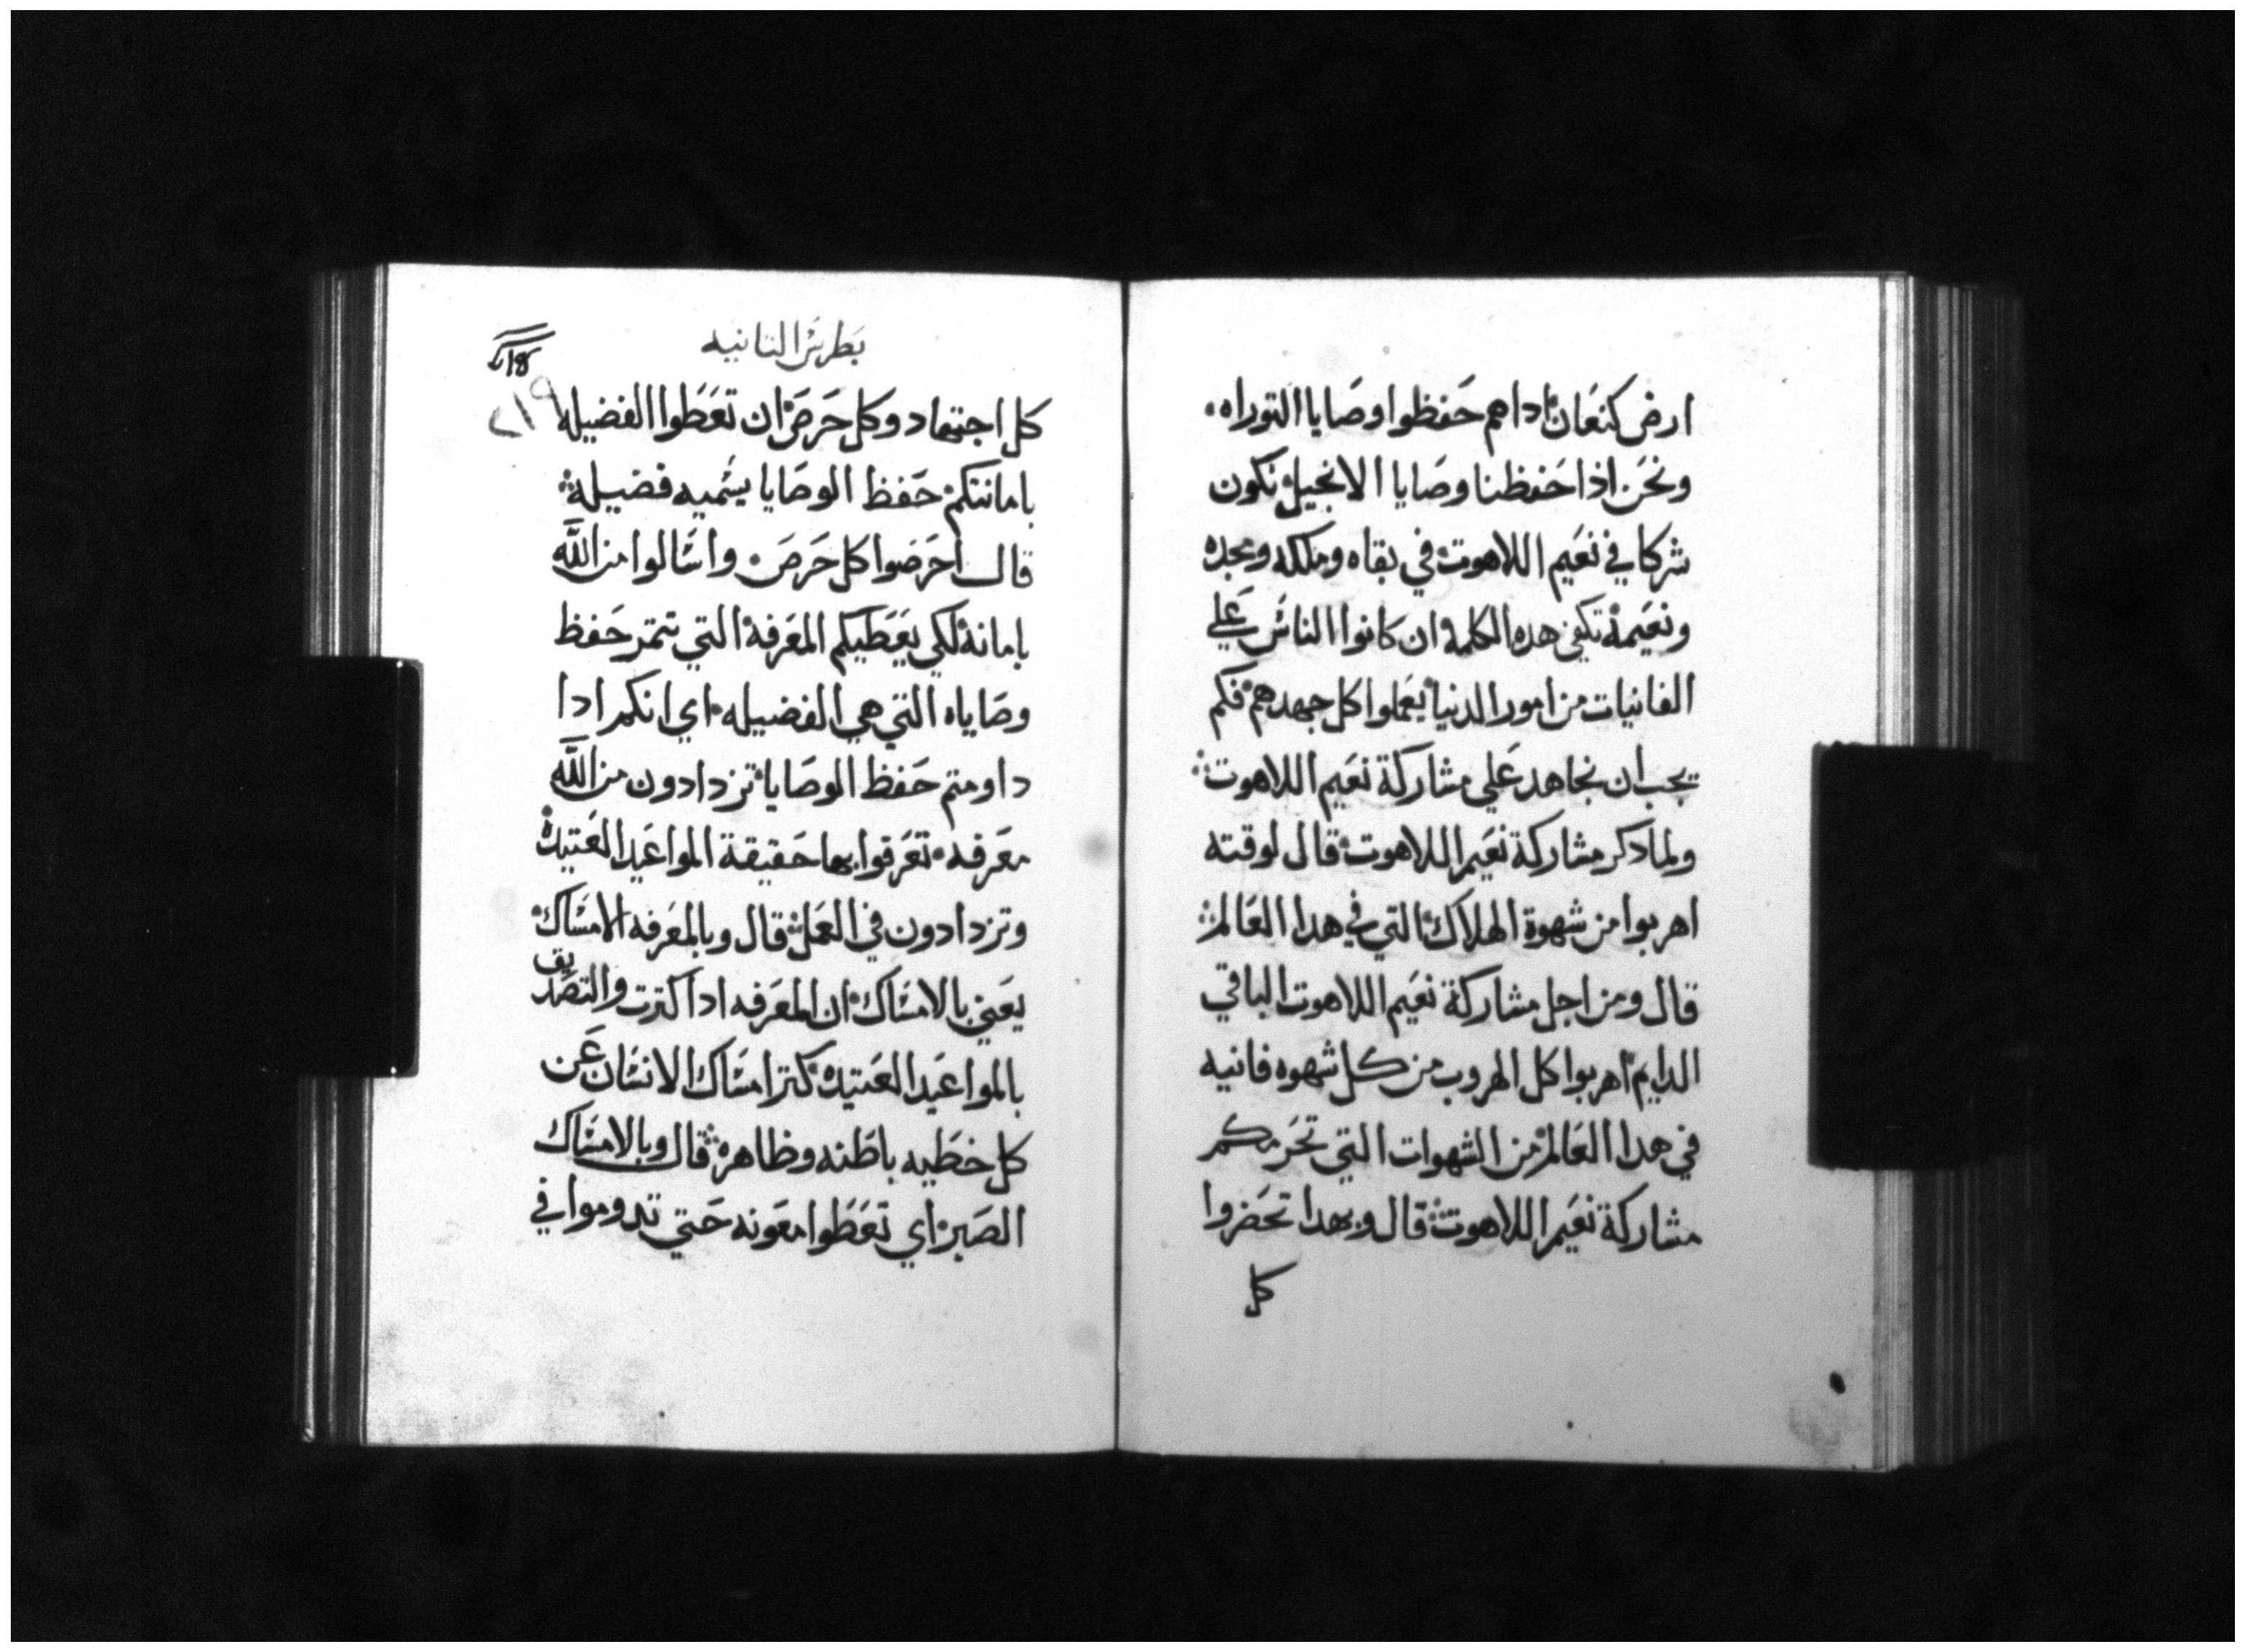 ارض كنعان اداهم حفظوا وصايا التوراه
ونحن اذا حفظنا وصايا الانجيل نكون
شركا في نعيم اللاهوت في بقاه وملكه ومجده
ونعيمة تكفي هده الكلمة ان كانوا الناس علي
الفانيات من امور الدنيا يعملوا كل جهدهم فكم
يجب ان نجاهد علي مشاركة نعيم اللاهوت
ولما دكر مشاركة نعيم اللاهوت قال لوقته
اهربوا من شهوة الهلاك التي في هدا العالم
قال ومن اجل مشاركة نعيم اللاهوت الباقي
الدايم اهربوا كل الهروب من كل شهوه فانيه
في هدا العالم من الشهوات التي تحرمكم
مشاركة نعيم اللاهوت قال وبهدا تحضروا
كل
بطرس التانيه
كل اجتهاد وكل حرص ان تعطوا الفضيله
٢١٩
بامانتكم حفظ الوصايا يسميه فضيلة
قال احرصوا كل حرص واسالوا من الله
بامانة لكي يعطيكم المعرفة التي تتمر حفظ
وصاياه التي هي الفضيله اي انكم ادا
داومتم حفظ الوصايا تزدادون من الله
معرفه تعرفوا بها حقيقة المواعيد العتيدة
وتزدادون في العمل قال وبالمعرفه الامساك
يعني بالامساك ان المعرفه ادا كترت والتصديق
بالمواعيد العتيدة كتر امساك الانسان عن
كل خطيه باطنه وظاهرة قال وبالامساك
الصبر اي تعطوا معونه حتي تدوموا في